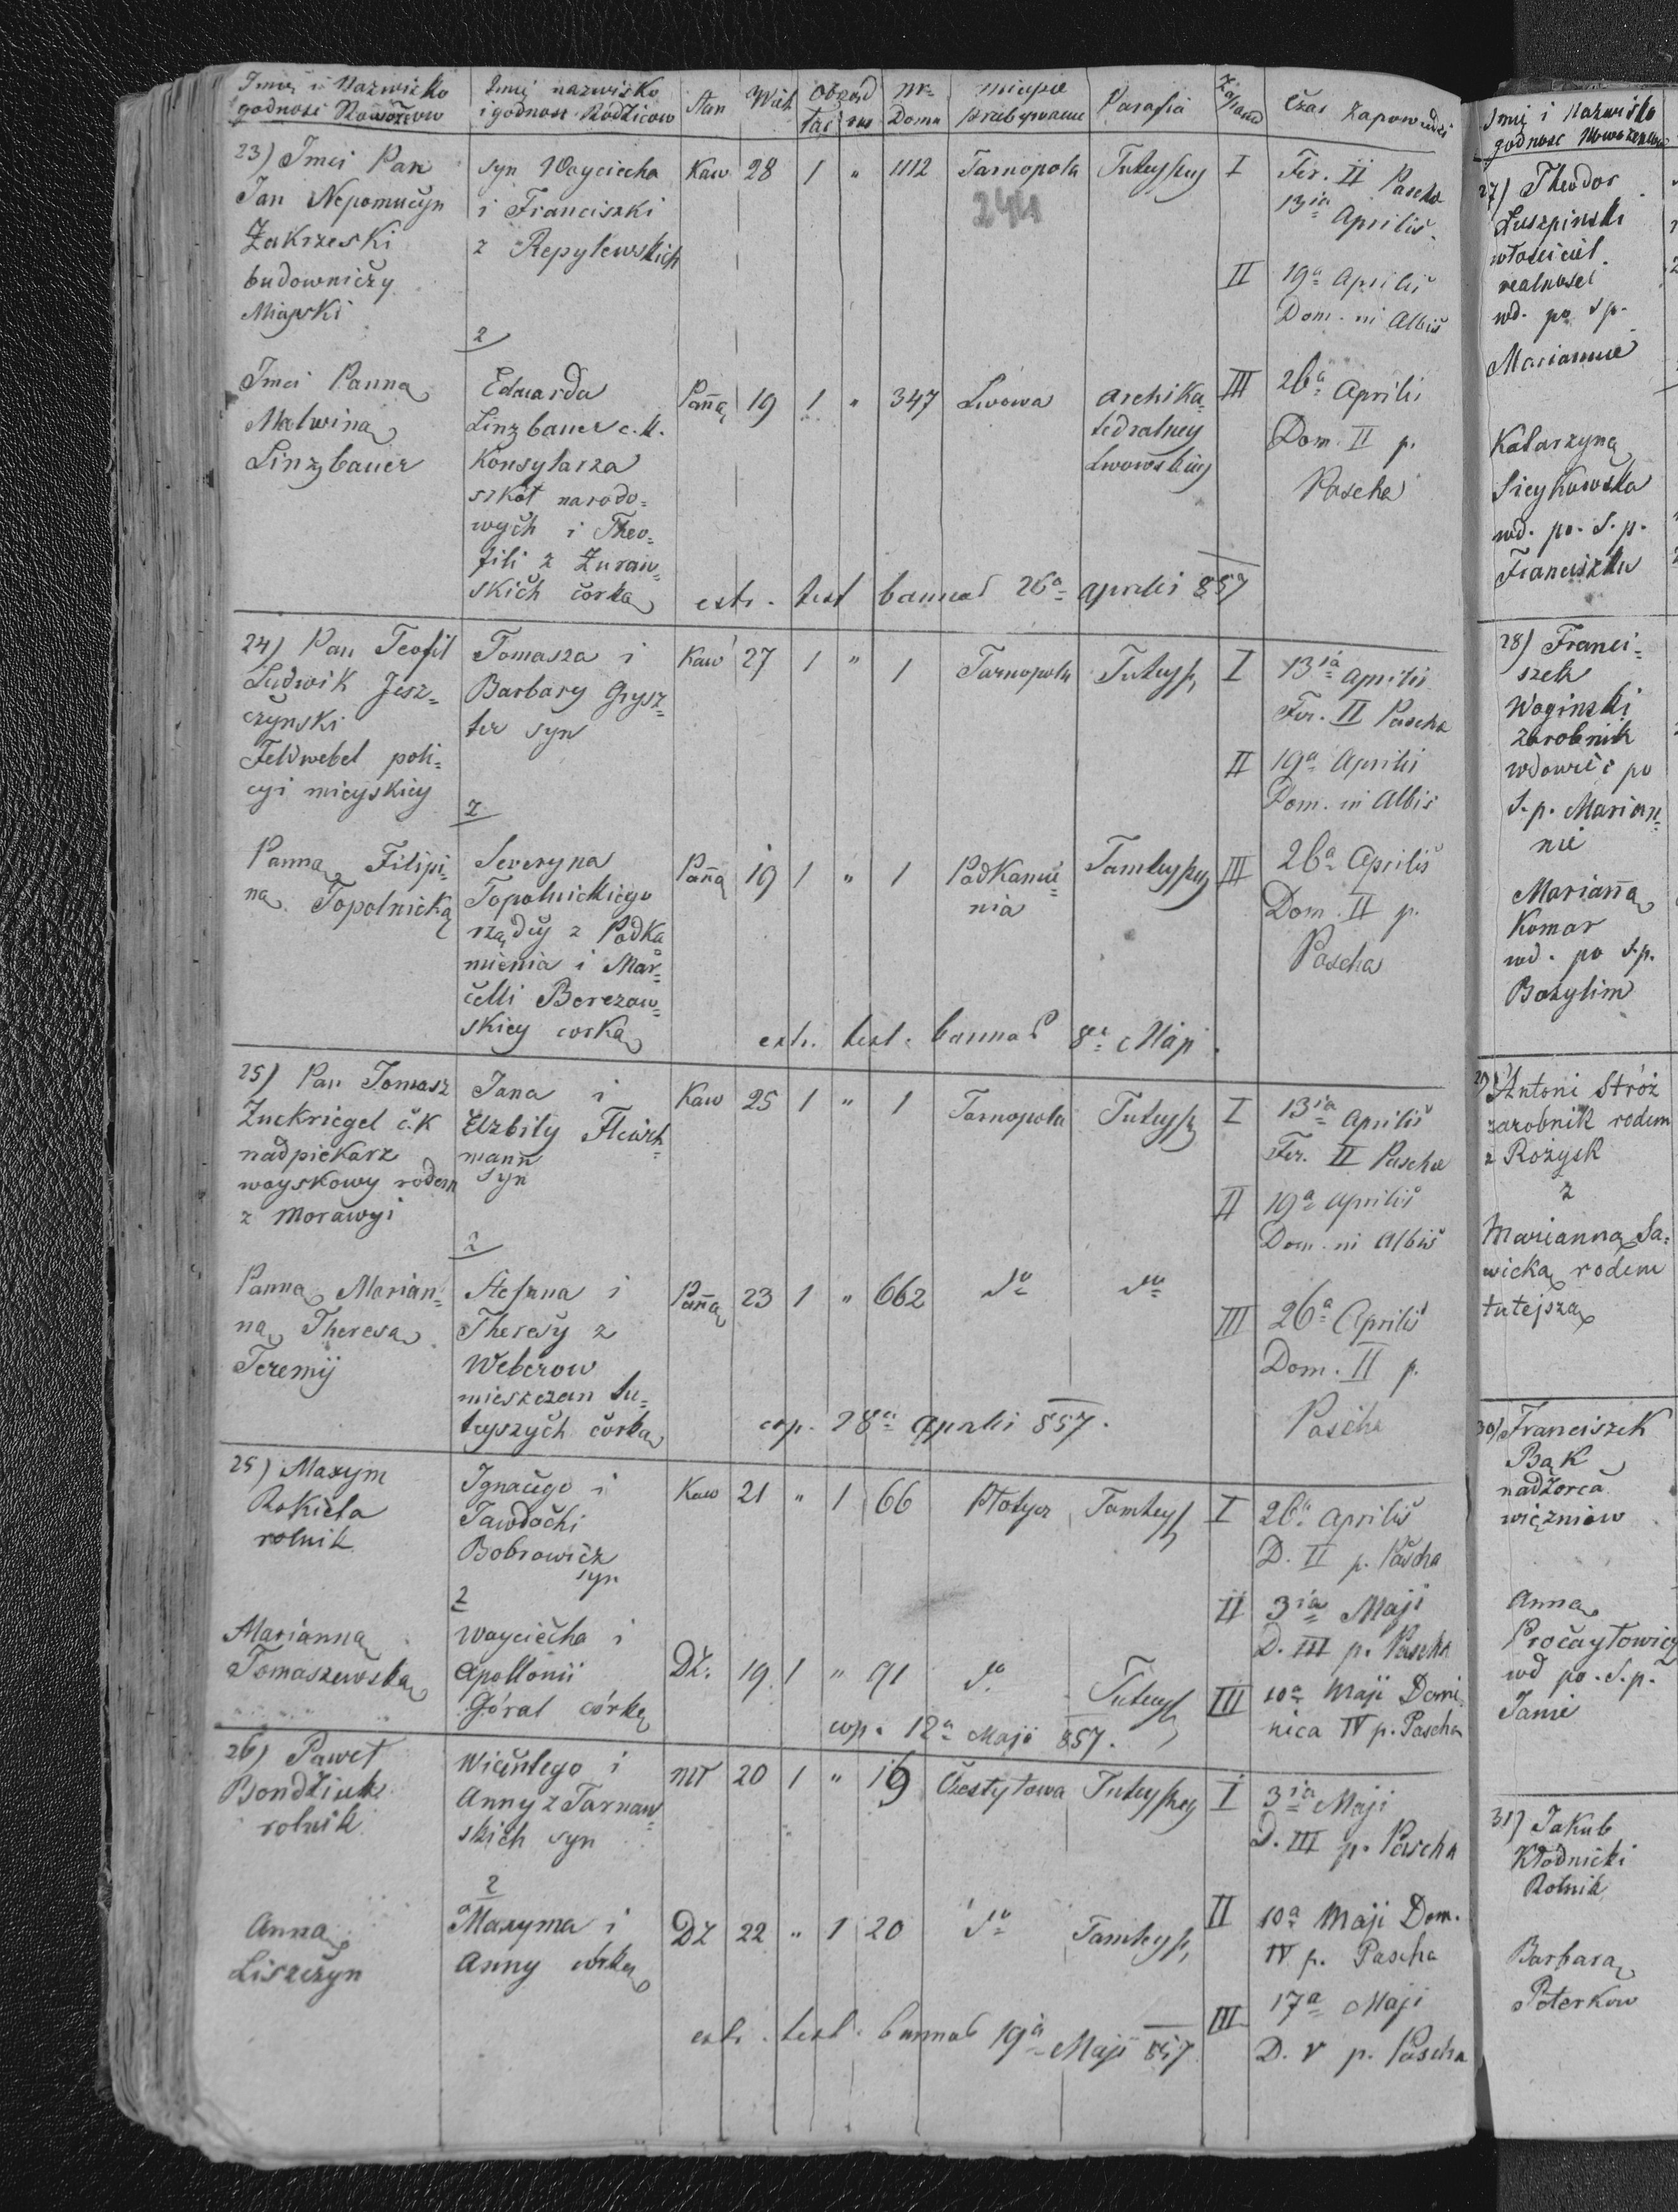 Imię i Nazwisko godność Nowożeńcow | Imię nazwisko i godność Rodzicow | Stan | Wiek | Obrząd łac rus | Nr Domu | miejsce przebywania | Parafia | Zapowied | Czas Zapowiedzi
23) Jmci Pan
Jan Nepomucyn
Zakrzeski
budowniczy
Miayski
syn Woyciecha
i Franciszki
z Repylewskich
Kaw 28 1 " 1112 Tarnopola Tuteyszey
244
I Fer. II Pascha
13ia Aprilis
II 19a Aprilis
Dom. in Albis
z
Jmci Panna
Malwina
Linzbauer
Eduarda
Linzbauer c.k.
Konsylarza
szkół narodo=
wych i Theo=
fili z Zuraw=
skich córka
Pañą 19 1 " 347 Lwowa
Archika=
tedralney
Lwowskiey
III 26a Aprilis
Dom. II p.
Pascha
extr. test bannor 26a Aprilis 857
24) Pan Teofil
Ludwik Jesz=
czynski
Feldwebel poli=
cyi mieyskiey
Tomasza i
Barbary Grysz=
ter syn
Kaw 27 1 " 1 Tarnopola Tuteysz
I 13ia Aprilis
Fer. II Pascha
II 19a Aprilis
Dom. in Albis
z
Panna Filipi=
na Topolnicką
Seweryna
Topolnickiego
rządcy z Podka
mienia i Mar=
celli Berezow=
skiey corka
Pañą 19 1 " 1 Podkamie=
nia
Tamteyszey
III 26a Aprilis
Dom. II p.
Pascha
extr. test. bannor 8a Maji
25) Pan Tomasz
Zuckriegel c.K
nadpiekarz
woyskowy rodem
z Morawyi
Jana i
Elzbity Fleisch=
mann
syn
Kaw 25 1 " 1 Tarnopola Tuteysz
I 13ia Aprilis
Fer. II Pascha
II 19a Aprilis
Dom. in Albis
z
Panna Marian=
na Theresa
Jeremij
Stefana i
Theresy z
Weberow
mieszczan tu=
teyszych córka
Pañą 23 1 " 662 do do
III 26a Aprilis
Dom. II p.
Pascha
cop. 28a Aprilis 857.
25) Maxym
Rokicta
rolnik
Ignacego i
Jawdochi
Bobrowicz
syn
Kaw 21 " 1 66 Płotycz Tamteysz
I 26a Aprilis
D. II p. Pascha
II 3ia Maji
D. III p. Pascha
z
Marianna
Tomaszewska
Woyciecha i
Apollonii
Góral córką
DZ. 19 1 " 91 do Tuteysz
III 10a Maji Domi
nica IV p. Pascha
cop. 12a Maji 857.
26) Paweł
Bondziuk
rolnik
Wicentego i
Anny z Tarnaw=
skich syn
MŁ 20 1 " 19 Czestyłowa Tuteyszey
I 3ia Maji
D. III p. Pascha
z
Anna
Liszczyn
Maxyma i
Anny córka
DZ 22 " 1 20 do Tamteysz
II 10a Maji Dom.
IV p. Pascha
III 17a Maji
D. V p. Pascha
extr. test. bannor 19a Maji 857
Imię i Nazwisko
godność Nowożeńcow
27) Theodor
Łuszpinski
właściciel
realności
wd. po s.p.
Mariannie
Katarzyna
Sieykowska
wd. po. S.p.
Franciszku
28) Franci=
szek
Woginski
zarobnik
wdowiec po
S.p. Marian=
nie
Marianną
Komar
wd. po s.p.
Bazylim
29) Antoni Stróż
zarobnik rodem
z Rożysk
z
Marianna Sa=
wicka rodem
tutejsza
30) Franciszek
Bąk
nadzorca
więzniow
Anna
Procaytowicz
wd po. S.p.
Janie
31) Jakub
Kłodnicki
Rolnik
Barbara
Peterkow